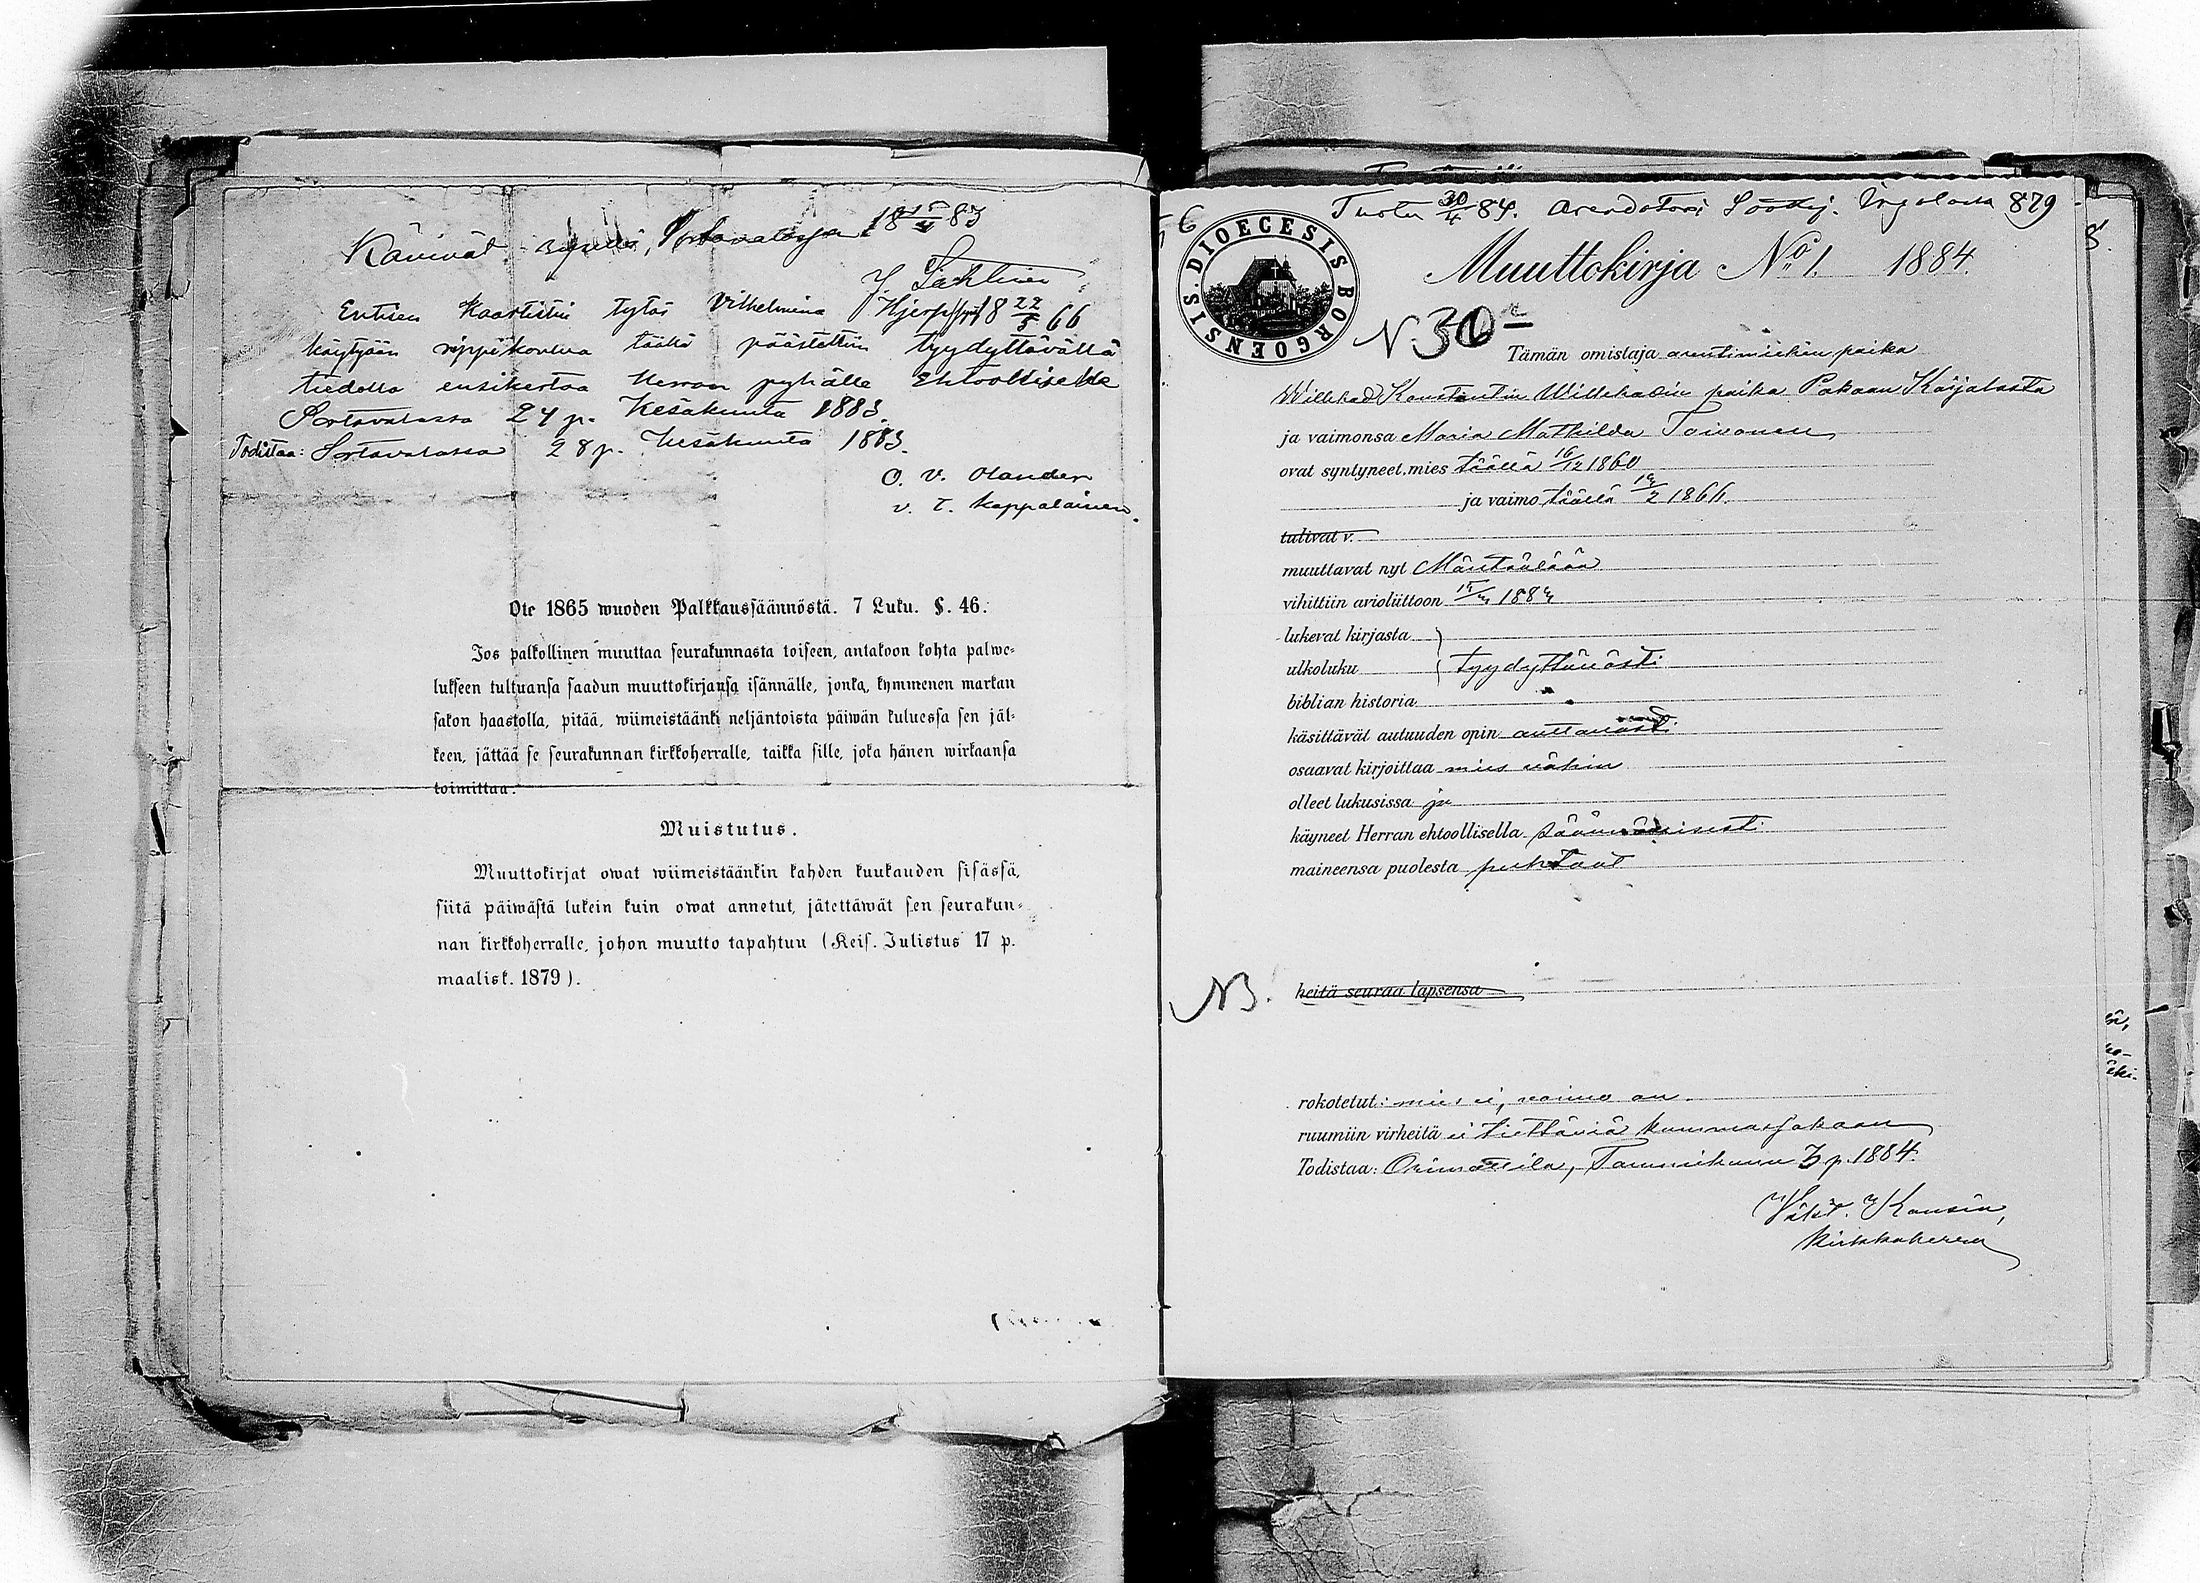 Kävivät ripillä, Sortavalassa 18 15/4 83
J. Sahlman
Entisen Kaartistin tytär Vilhelmina Hjerpe synt 18 22/5 66
käytyään rippikoulua täällä päästettiin tyydyttävällä
tiedolla ensikertaa Herran pyhälle Ehtoolliselle
Sortavalassa 24 p. Kesäkuuta 1883.
Todistaa: Sortavalassa 28 p. Kesäkuuta 1883.
O. V. Olander
v. t. kappalainen.
Ote 1865 wuoden Palkkaussäännöstä. 7 Luku. §. 46.
Jos palkollinen muuttaa seurakunnasta toiseen, antakoon kohta palwe-
lukseen tultuansa saadun muuttokirjansa isännälle, jonka, kymmenen markan
sakon haastolla, pitää, wiimeistäänki neljäntoista päiwän kuluessa sen jäl-
keen, jättää se seurakunnan kirkkoherralle, taikka sille, joka hänen wirkaansa
toimittaa.
Muistutus.
Muuttokirjat owat wiimeistäänkin kahden kuukauden sisässä,
siitä päiwästä lukein kuin owat annetut, jätettäwät sen seurakun-
nan kirkkoherralle, johon muutto tapahtuu (Keis. Julistus 17 p.
maalisk. 1879).
Tuotu 30/4 84. Arendatori 879
DIOECESIS BORGOENSIS.
Muuttokirja No 1. 1884.
N. 30
Tämän omistaja arentimiehen poika
Willehad Konstantin Willehadin poika Pakaan Karjalasta
ja vaimonsa Maria Mathilda Toivonen
ovat syntyneet, mies täällä 16/12 1860
ja vaimo täällä 14/2 1866
tulivat v.
muuttavat nyt Mäntsälään
vihittiin avioliittoon 1884
lukevat kirjasta
ulkoluku tyydyttävästi
biblian historia
käsittävät autuuden opin auttavasti
osaavat kirjoittaa mies vähin
olleet lukusissa ja
käyneet Herran ehtoollisella säännöllisesti
maineensa puolesta puhtaat
NB. heitä seuraa lapsensa
rokotetut: mies ei, vaimo on.
ruumiin virheitä ei tiettäviä kummassakaan
Todistaa: Orimattila, Tammikuun 3 p. 1884.
Kirkkoherra